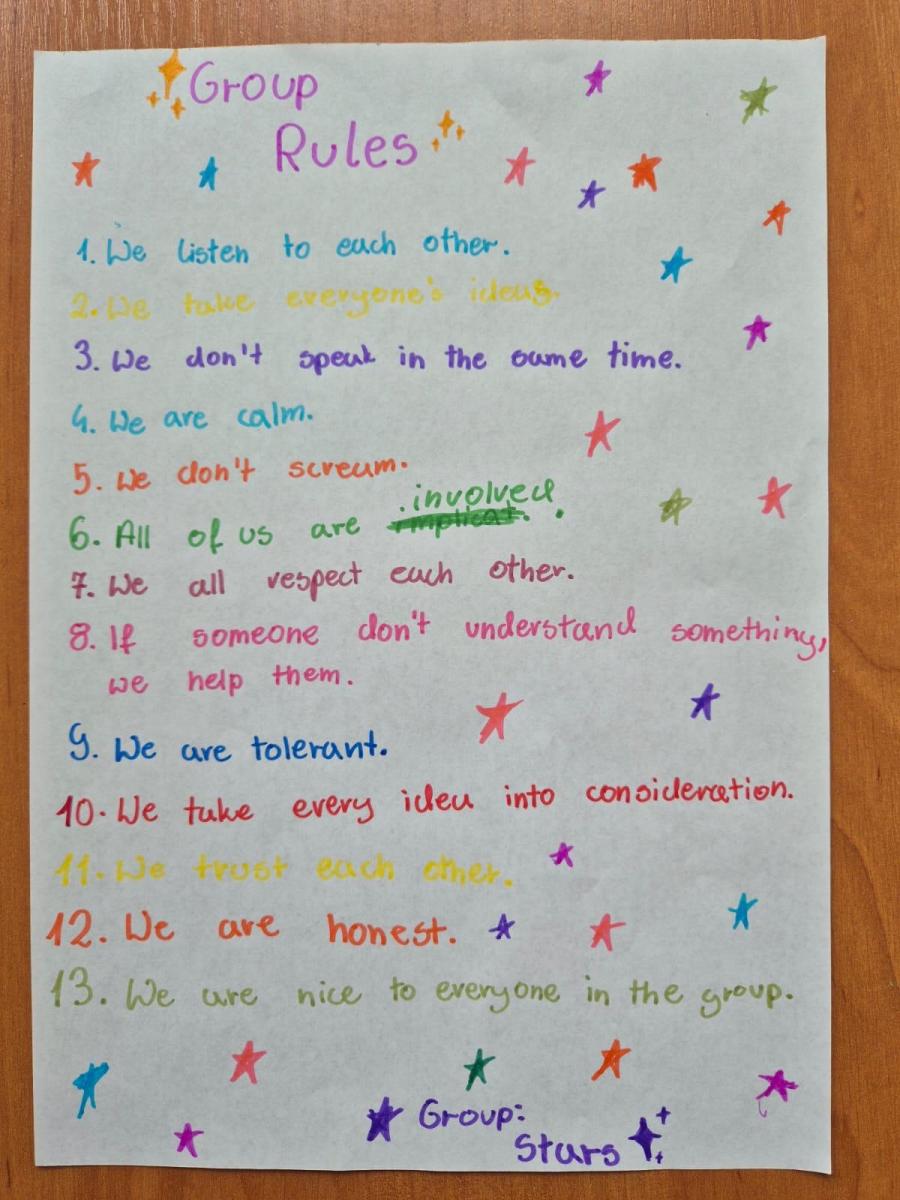 Group
Rules
1. We listen to each other.
2. We take everyone's ideas.
3. We don't speak in the same time.
4. We are calm.
5. We don't scream.
6. All of us are involved.
7. We all respect each other.
8. If someone don't understand something,
we help them.
9. We are tolerant.
10. We take every idea into consideration.
11. We trust each other.
12. We are honest.
13. We are nice to everyone in the group.
Group:
Stars